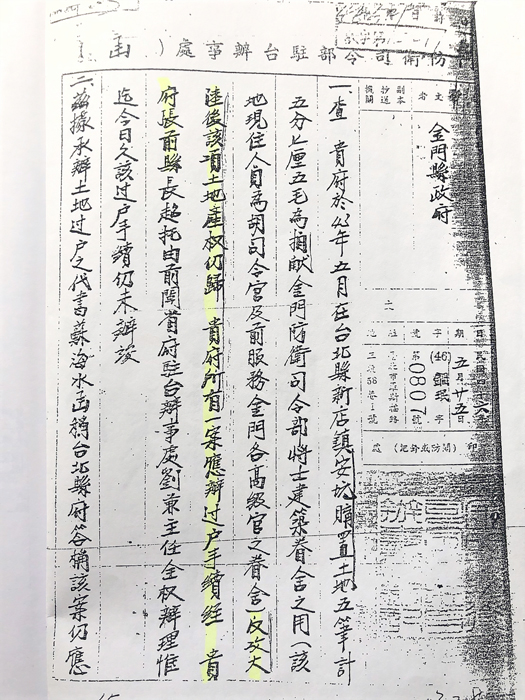 防衛司令部駐台辦事處(函)
受文者
副本抄送機關
金門縣政府
五月廿五日
(46)
字第0807號
一、查　貴府於43年五月在台北縣新店鎮安坑購置土地五筆計
五分七厘五毛為捐献金門防衛司令部將士建築眷舍之用(該
地現住人員為胡司令官及前服務金門各高級官之眷舍)反攻大
陸後該項土地產权仍歸　貴府所有一案應辦过戶手續經　貴
府張前縣長超托由前閩省府駐台辦事处劉兼主任全权辦理惟
迄今日久該过戶手續仍未辦竣
二、茲據承辦土地过戶之代書蘇海水函稱台北縣府答稱該案仍應